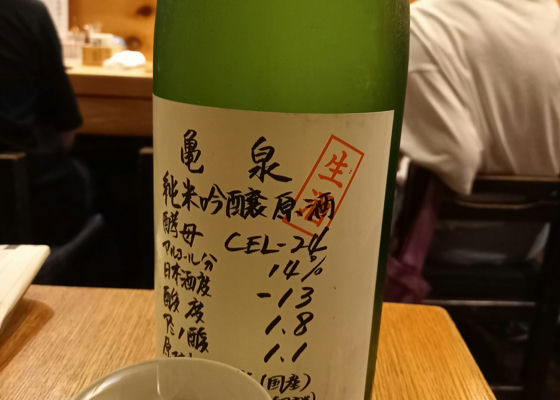 亀泉
生酒
純米吟醸原酒
酵母 CEL-24
アルコール分 14%
日本酒度 -13
酸度 1.8
アミノ酸 1.1
(国産)